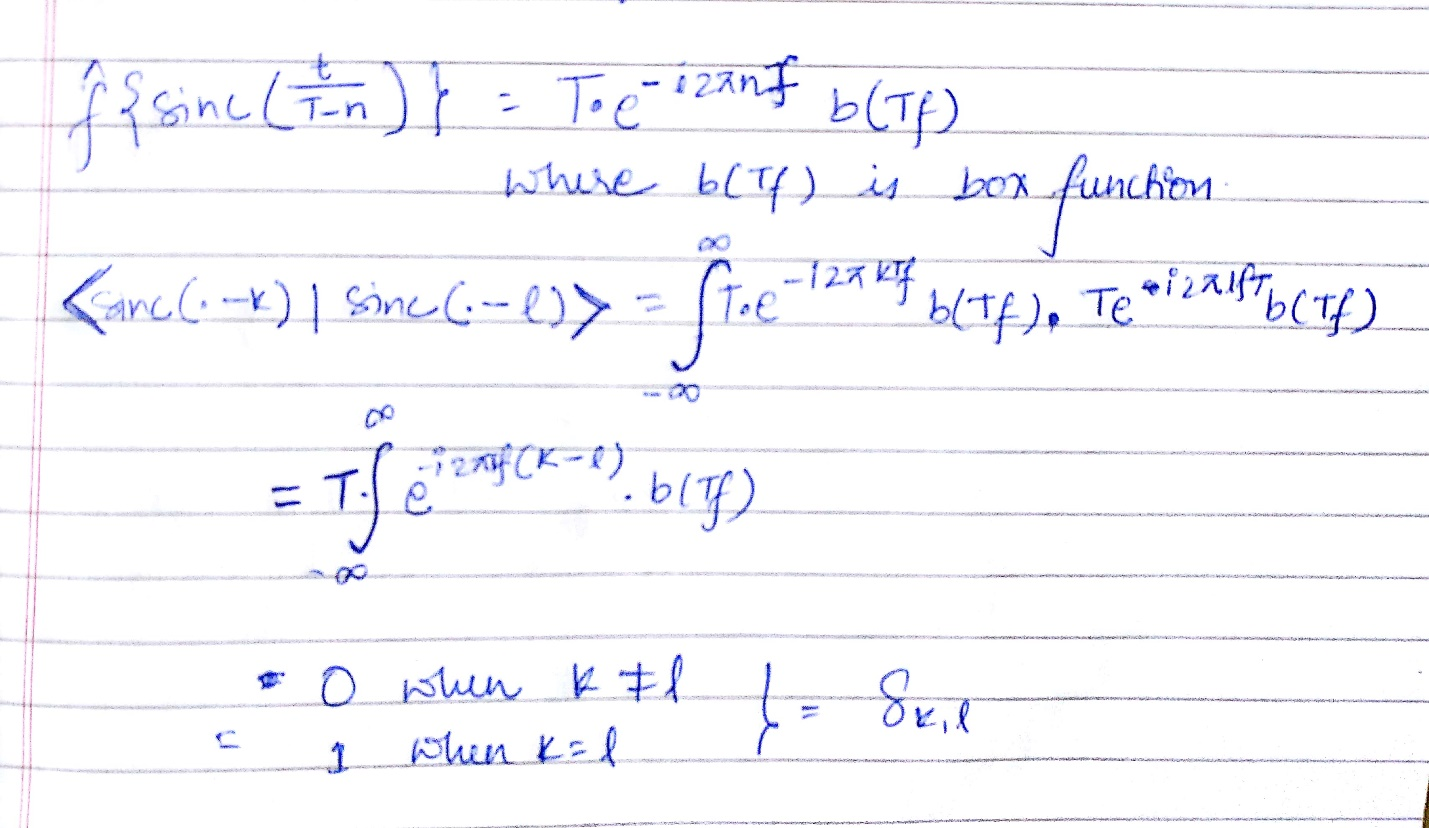 f̂{sinc(t/T-n)} = T.e^{-i2πnf} b(Tf)
where b(Tf) is box function.
<sinc(.-k) | sinc(.-l)> = ∫_{-∞}^{∞} T.e^{-i2πkTf} b(Tf). Te^{i2πlfT} b(Tf)
= T.∫_{-∞}^{∞} e^{-i2πTf(k-l)}. b(Tf)
= 0 when k ≠ l } = δ_{k,l}
= 1 when k=l